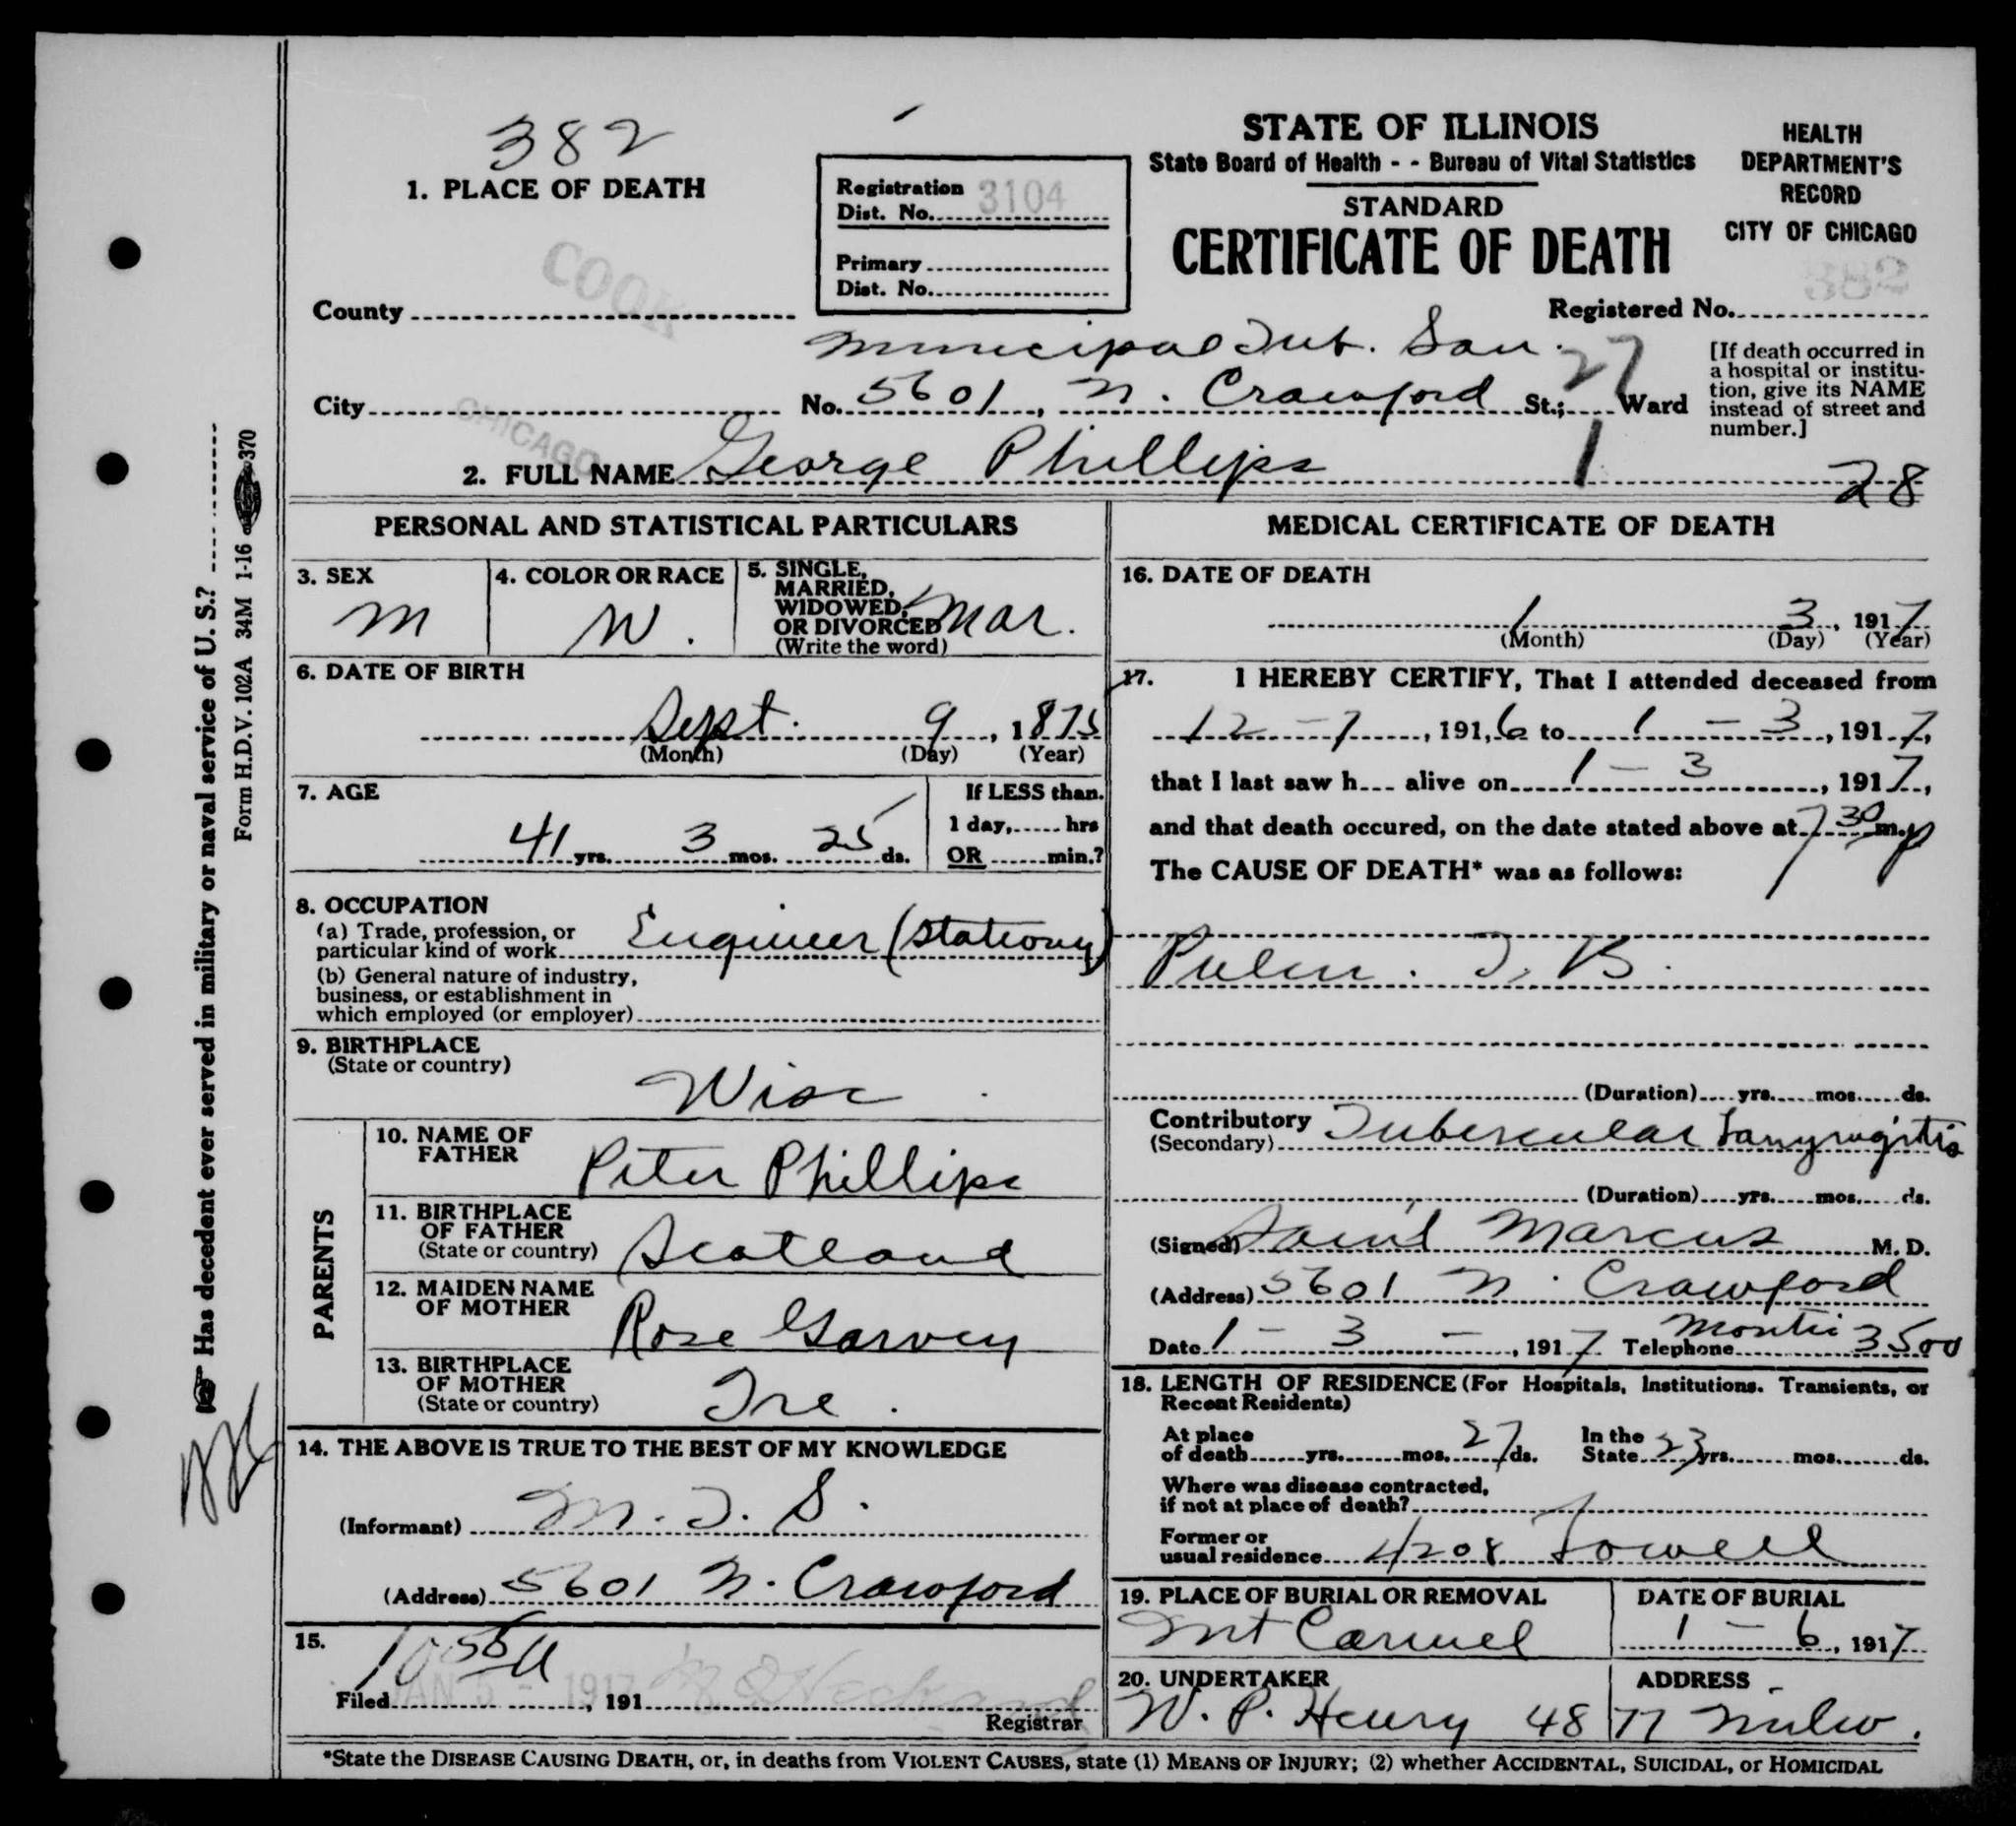 382
1. PLACE OF DEATH
Registration
Dist. No. 3104
Primary
Dist. No.
STATE OF ILLINOIS
State Board of Health - - Bureau of Vital Statistics
STANDARD
CERTIFICATE OF DEATH
HEALTH
DEPARTMENT'S
RECORD
CITY OF CHICAGO
County COOK
Registered No. 382
Municipal Tub. San.
City CHICAGO No. 5601, N. Crawford St.; 27 Ward
[If death occurred in
a hospital or institu-
tion, give its NAME
instead of street and
number.]
2. FULL NAME George Phillips 1 28
PERSONAL AND STATISTICAL PARTICULARS
3. SEX
M
4. COLOR OR RACE
W.
5. SINGLE,
MARRIED,
WIDOWED,
OR DIVORCED Mar.
(Write the word)
6. DATE OF BIRTH
Sept. 9, 1875
(Month) (Day) (Year)
7. AGE
41 yrs. 3 mos. 25 ds.
If LESS than.
1 day, hrs
OR min.?
8. OCCUPATION
(a) Trade, profession, or
particular kind of work Engineer (Stationy)
(b) General nature of industry,
business, or establishment in
which employed (or employer)
9. BIRTHPLACE
(State or country)
Wisc
PARENTS
10. NAME OF
FATHER
Peter Phillips
11. BIRTHPLACE
OF FATHER
(State or country) Scotland
12. MAIDEN NAME
OF MOTHER
Rose Garvey
13. BIRTHPLACE
OF MOTHER
(State or country) Ire.
14. THE ABOVE IS TRUE TO THE BEST OF MY KNOWLEDGE
(Informant) M. T. S.
(Address) 5601 N. Crawford
15.
Filed JAN 5 - 1917, 191
Registrar
MEDICAL CERTIFICATE OF DEATH
16. DATE OF DEATH
1 3, 1917
(Month) (Day) (Year)
17. I HEREBY CERTIFY, That I attended deceased from
12 - 7, 191,6 to 1 - 3, 191 7,
that I last saw h alive on 1 - 3, 191 7,
and that death occured, on the date stated above at 7 30 m. p
The CAUSE OF DEATH* was as follows:
Pulm. T. B.
(Duration) yrs. mos. ds.
Contributory
(Secondary) Tubercular Laryngitis
(Duration) yrs. mos. ds.
(Signed) Marcus M. D.
(Address) 5601 N. Crawford
Date 1 - 3 -, 1917 Telephone 3500
18. LENGTH OF RESIDENCE (For Hospitals, Institutions. Transients, or
Recent Residents)
At place
of death yrs. mos. 27 ds.
In the
State 23 yrs. mos. ds.
Where was disease contracted,
if not at place of death?
Former or
usual residence 4208 Lowell
19. PLACE OF BURIAL OR REMOVAL
Mt Carmel
DATE OF BURIAL
1 - 6, 1917
20. UNDERTAKER
ADDRESS
W. P. Henry 4877 Milw.
*State the DISEASE CAUSING DEATH, or, in deaths from VIOLENT CAUSES, state (1) MEANS OF INJURY; (2) whether ACCIDENTAL, SUICIDAL, or HOMICIDAL
Has decedent ever served in military or naval service of U. S.?
Form H.D.V. 102A 34M 1-16 370